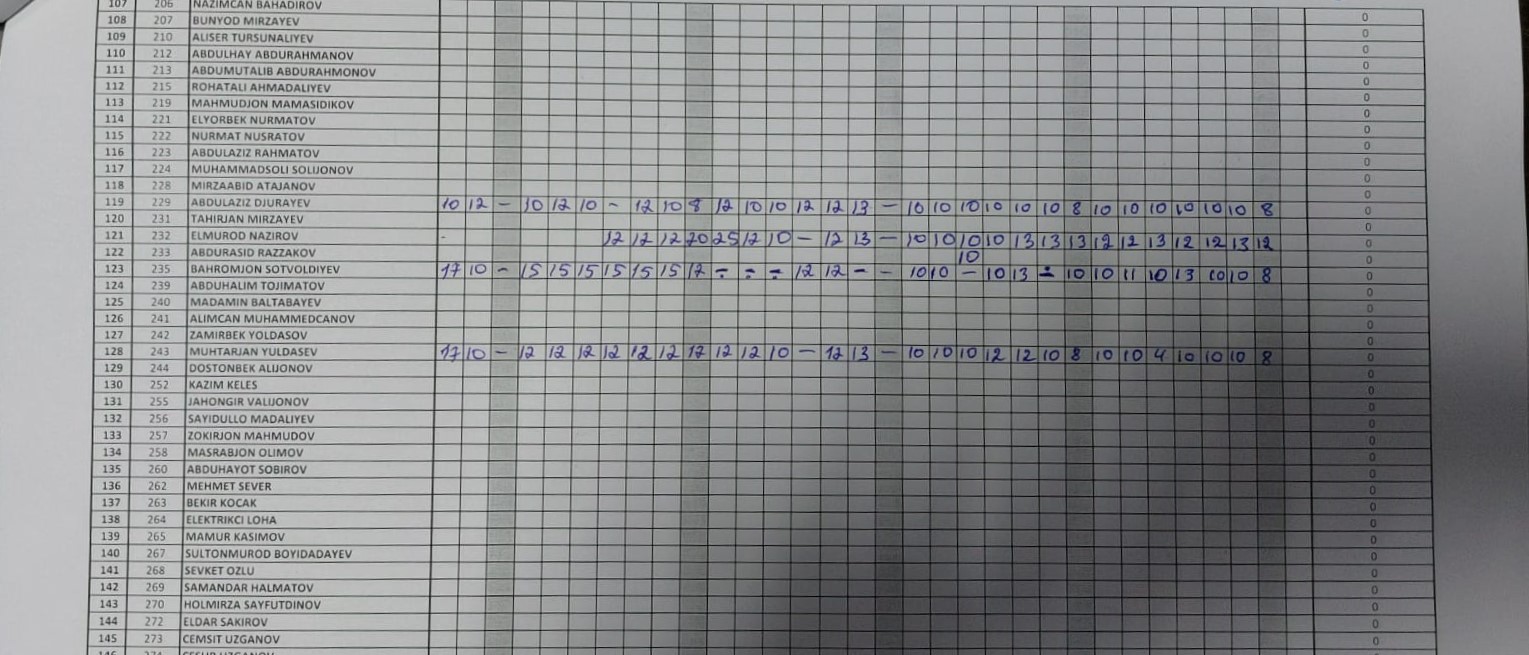 107 206 NAZIMCAN BAHADIROV
108 207 BUNYOD MIRZAYEV 0
109 210 ALISER TURSUNALIYEV 0
110 212 ABDULHAY ABDURAHMANOV 0
111 213 ABDUMUTALIB ABDURAHMONOV 0
112 215 ROHATALI AHMADALIYEV 0
113 219 MAHMUDJON MAMASIDIKOV 0
114 221 ELYORBEK NURMATOV 0
115 222 NURMAT NUSRATOV 0
116 223 ABDULAZIZ RAHMATOV 0
117 224 MUHAMMADSOLI SOLIJONOV 0
118 228 MIRZAABID ATAJANOV 0
119 229 ABDULAZIZ DJURAYEV 10 12 - 10 12 10 - 12 10 8 12 10 10 12 12 13 - 10 10 10 10 10 10 8 10 10 10 10 10 10 8 0
120 231 TAHIRJAN MIRZAYEV 0
121 232 ELMUROD NAZIROV - 12 12 12 20 25 12 10 - 12 13 - 10 10 10 10 13 13 13 12 12 13 12 12 13 12 0
122 233 ABDURASID RAZZAKOV 10 0
123 235 BAHROMJON SOTVOLDIYEV 17 10 - 15 15 15 15 15 15 12 - - - 12 12 - - 10 10 - 10 13 - 10 10 11 10 13 10 10 8 0
124 239 ABDUHALIM TOJIMATOV 0
125 240 MADAMIN BALTABAYEV 0
126 241 ALIMCAN MUHAMMEDCANOV 0
127 242 ZAMIRBEK YOLDASOV 0
128 243 MUHTARJAN YULDASEV 17 10 - 12 12 12 12 12 12 12 12 12 10 - 12 13 - 10 10 10 12 12 10 8 10 10 4 10 10 10 8 0
129 244 DOSTONBEK ALIJONOV 0
130 252 KAZIM KELES 0
131 255 JAHONGIR VALIJONOV 0
132 256 SAYIDULLO MADALIYEV 0
133 257 ZOKIRJON MAHMUDOV 0
134 258 MASRABJON OLIMOV 0
135 260 ABDUHAYOT SOBIROV 0
136 262 MEHMET SEVER 0
137 263 BEKIR KOCAK 0
138 264 ELEKTRIKCI LOHA 0
139 265 MAMUR KASIMOV 0
140 267 SULTONMUROD BOYIDADAYEV 0
141 268 SEVKET OZLU 0
142 269 SAMANDAR HALMATOV 0
143 270 HOLMIRZA SAYFUTDINOV 0
144 272 ELDAR SAKIROV 0
145 273 CEMSIT UZGANOV 0